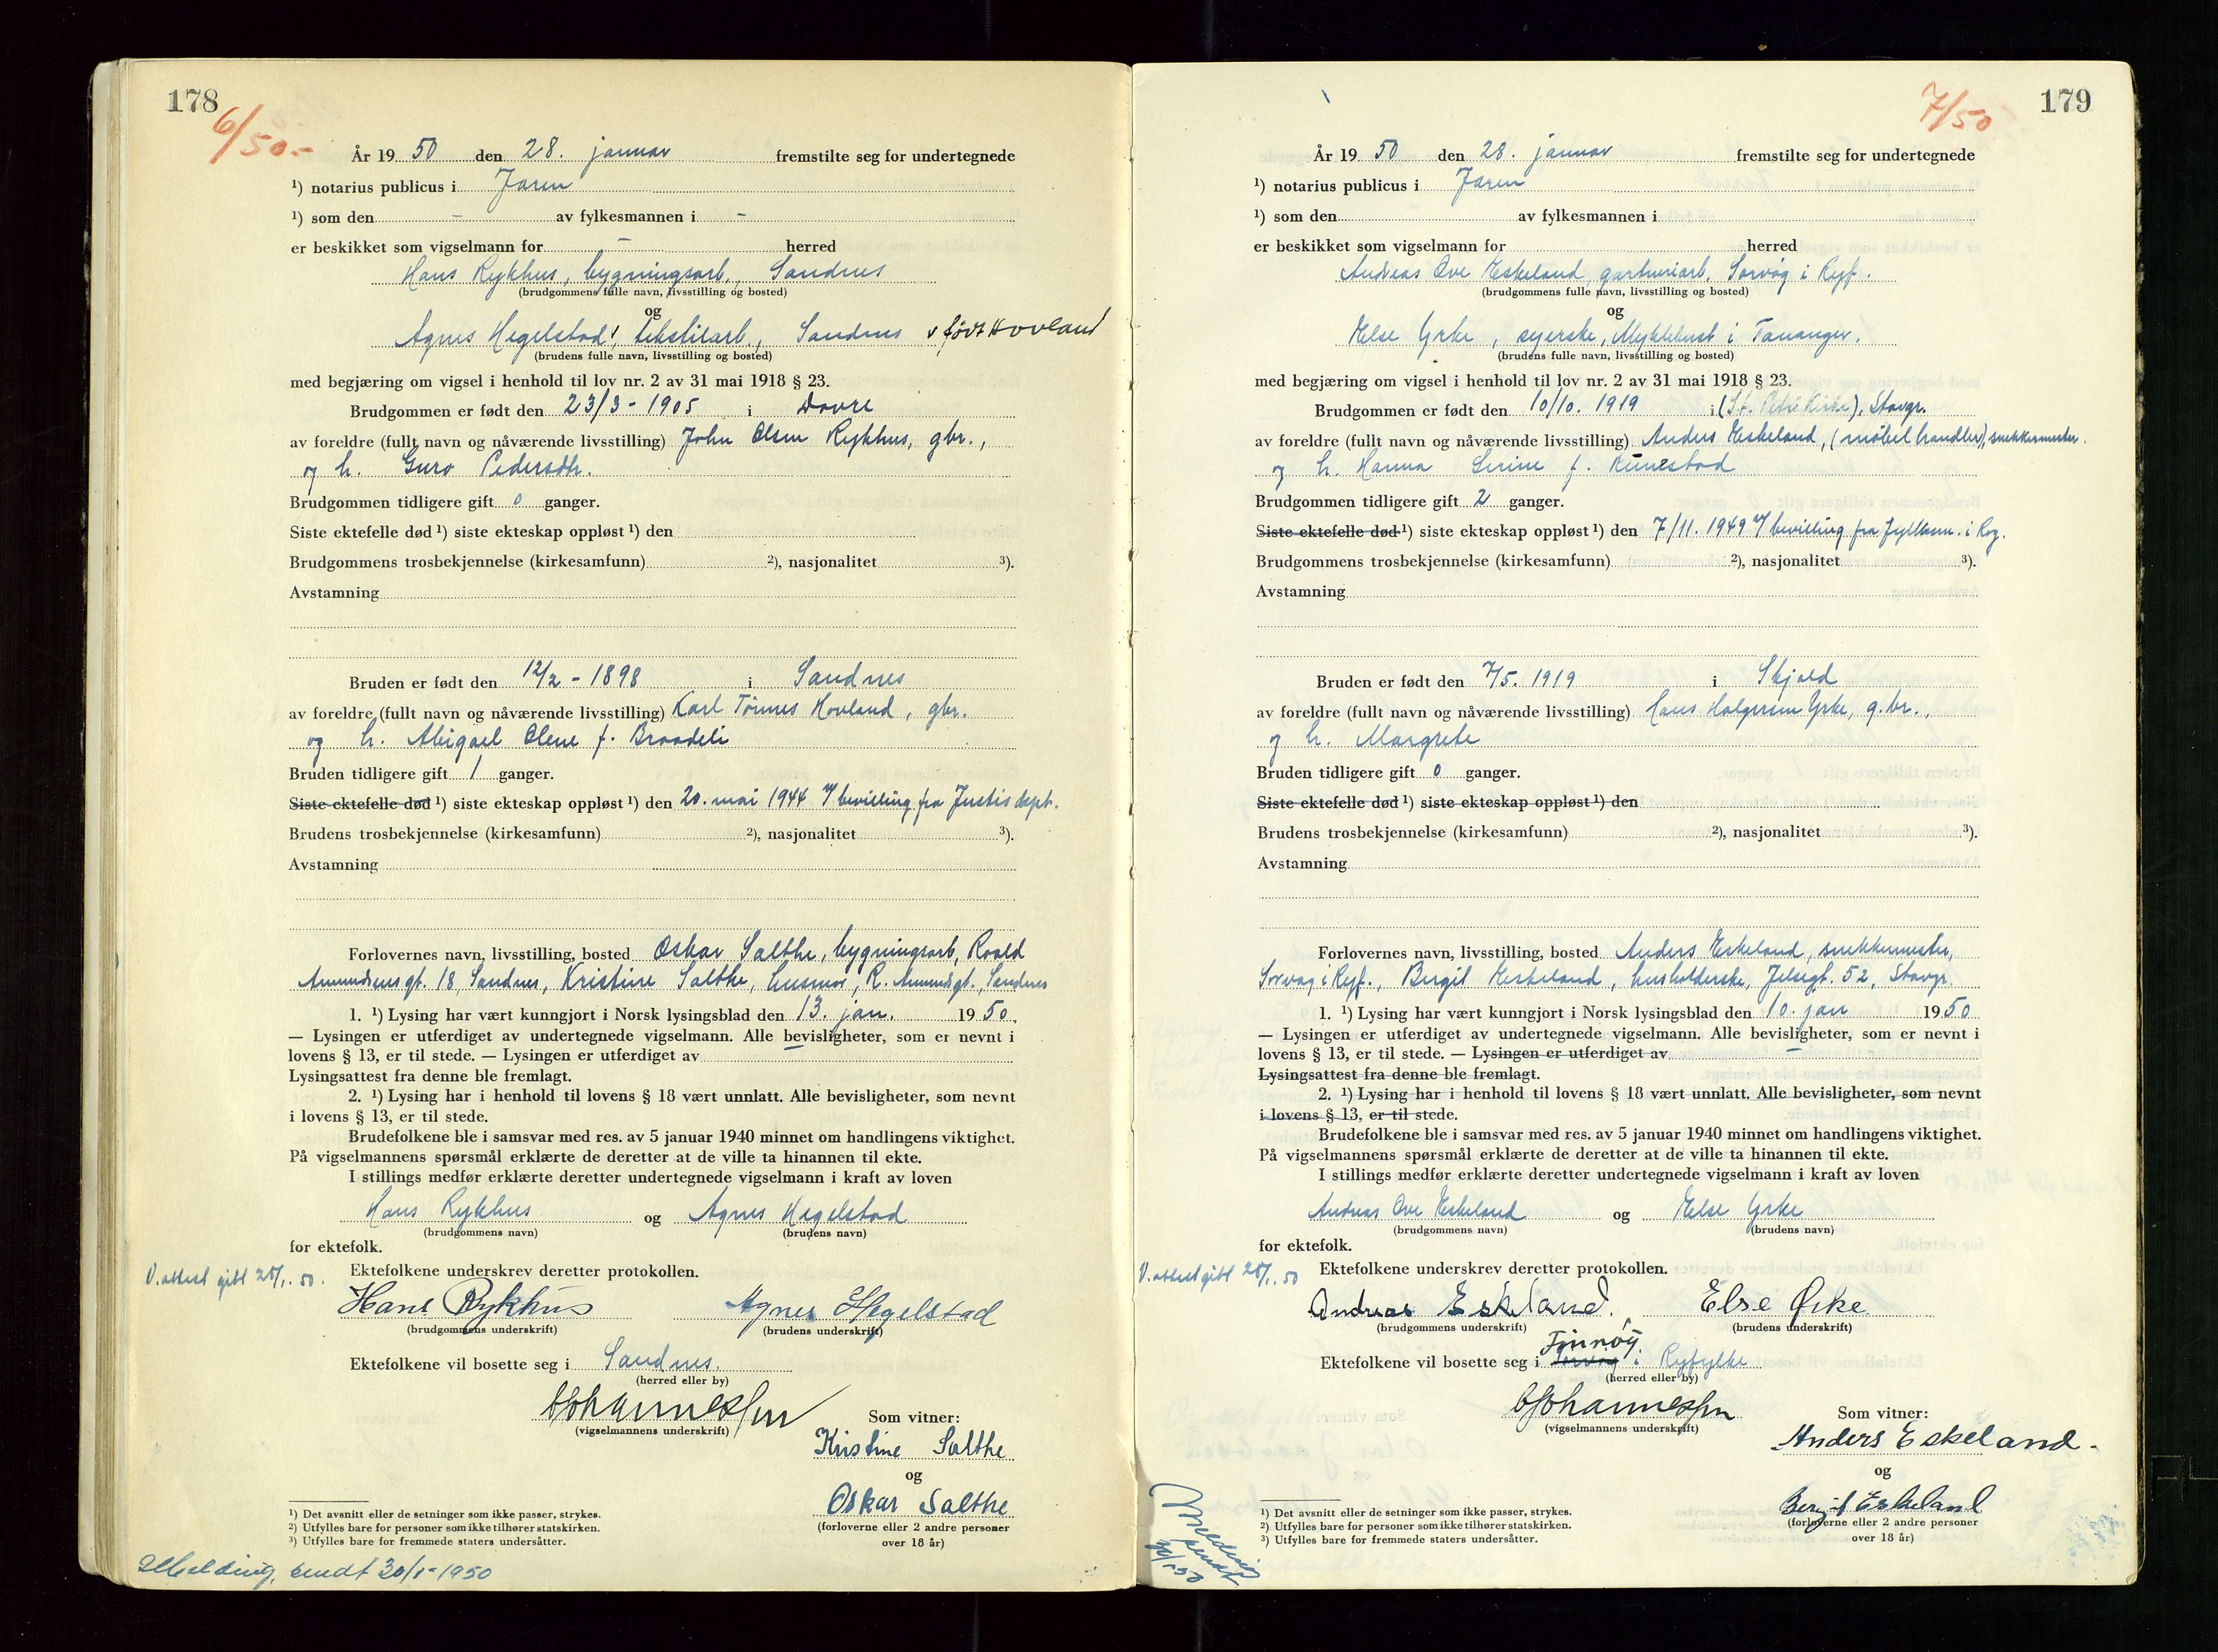 178
6/50.-
År 19 50 den 28. januar fremstilte seg for undertegnede
¹) notarius publicus i Jæren
¹) som den – av fylkesmannen i –
er beskikket som vigselmann for – herred
Hans Rykhus, bygningsarb., Sandnes
(brudgommens fulle navn, livsstilling og bosted)
og
Agnes Hegelstad, tekstilarb., Sandnes født Hovland
(brudens fulle navn, livsstilling og bosted)
med begjæring om vigsel i henhold til lov nr. 2 av 31 mai 1918 § 23.
Brudgommen er født den 23/3 - 1905 i Dovre
av foreldre (fullt navn og nåværende livsstilling) John Olsen Rykhus, gbr.,
og h. Guro Pedersdtr.
Brudgommen tidligere gift 0 ganger.
Siste ektefelle død ¹) siste ekteskap oppløst ¹) den
Brudgommens trosbekjennelse (kirkesamfunn) ²), nasjonalitet ³).
Avstamning
Bruden er født den 12/2 - 1898 i Sandnes
av foreldre (fullt navn og nåværende livsstilling) Karl Tønnes Hovland, gbr.
og h. Abigael Olene f. Braadeli
Bruden tidligere gift 1 ganger.
Siste ektefelle død ¹) siste ekteskap oppløst ¹) den 20. mai 1944 v/ bevilling fra Justisdept.
Brudens trosbekjennelse (kirkesamfunn) ²), nasjonalitet ³).
Avstamning
Forlovernes navn, livsstilling, bosted Oskar Salthe, bygningsarb, Roald
Amundsensgt. 18, Sandnes, Kristine Salthe, husmor, R. Amundsgt., Sandnes
1. ¹) Lysing har vært kunngjort i Norsk lysingsblad den 13. jan. 19 50.
— Lysingen er utferdiget av undertegnede vigselmann. Alle bevisligheter, som er nevnt i
lovens § 13, er til stede. — Lysingen er utferdiget av –
Lysingsattest fra denne ble fremlagt.
2. ¹) Lysing har i henhold til lovens § 18 vært unnlatt. Alle bevisligheter, som nevnt
i lovens § 13, er til stede.
Brudefolkene ble i samsvar med res. av 5 januar 1940 minnet om handlingens viktighet.
På vigselmannens spørsmål erklærte de deretter at de ville ta hinannen til ekte.
I stillings medfør erklærte deretter undertegnede vigselmann i kraft av loven
Hans Rykhus og Agnes Hegelstad
(brudgommens navn) (brudens navn)
for ektefolk.
V. attest gitt 28/1. 50. Ektefolkene underskrev deretter protokollen.
Hans Rykhus Agnes Hegelstad
(brudgommens underskrift) (brudens underskrift)
Ektefolkene vil bosette seg i Sandnes.
(herred eller by)
Johannessen
(vigselmannens underskrift)
Som vitner:
Kristine Salthe
og
Oskar Salthe
(forloverne eller 2 andre personer
over 18 år)
¹) Det avsnitt eller de setninger som ikke passer, strykes.
²) Utfylles bare for personer som ikke tilhører statskirken.
³) Utfylles bare for fremmede staters undersåtter.
Melding sendt 30/1-1950
179
7/50
År 19 50 den 28. januar fremstilte seg for undertegnede
¹) notarius publicus i Jæren
¹) som den av fylkesmannen i
er beskikket som vigselmann for herred
Andreas Ove Eskeland, gartneriarb. Sørvåg i Ryf.
(brudgommens fulle navn, livsstilling og bosted)
og
Else Yrke, syerske, Myklebust i Tananger.
(brudens fulle navn, livsstilling og bosted)
med begjæring om vigsel i henhold til lov nr. 2 av 31 mai 1918 § 23.
Brudgommen er født den 10/10. 1919 i (St. Petri Kirke), Stavgr.
av foreldre (fullt navn og nåværende livsstilling) Anders Eskeland, (møbelhandler), snekkermester.
og h. Hanna Serine f. Runestad
Brudgommen tidligere gift 2 ganger.
Siste ektefelle død ¹) siste ekteskap oppløst ¹) den 7/11. 1949 v/ bevilling fra fylkesm. i Rog.
Brudgommens trosbekjennelse (kirkesamfunn) ²), nasjonalitet ³).
Avstamning
Bruden er født den 7/5. 1919 i Skjold
av foreldre (fullt navn og nåværende livsstilling) Hans Holgersen Yrke, g.br.,
og h. Margrete
Bruden tidligere gift 0 ganger.
Siste ektefelle død ¹) siste ekteskap oppløst ¹) den
Brudens trosbekjennelse (kirkesamfunn) ²), nasjonalitet ³).
Avstamning
Forlovernes navn, livsstilling, bosted Anders Eskeland, snekkermester,
Sørvåg i Ryf., Bergit Eskeland, husholderske, Jelsegt. 52, Stavgr.
1. ¹) Lysing har vært kunngjort i Norsk lysingsblad den 10. jan 19 50
— Lysingen er utferdiget av undertegnede vigselmann. Alle bevisligheter, som er nevnt i
lovens § 13, er til stede. — Lysingen er utferdiget av –
Lysingsattest fra denne ble fremlagt.
2. ¹) Lysing har i henhold til lovens § 18 vært unnlatt. Alle bevisligheter, som nevnt
i lovens § 13, er til stede.
Brudefolkene ble i samsvar med res. av 5 januar 1940 minnet om handlingens viktighet.
På vigselmannens spørsmål erklærte de deretter at de ville ta hinannen til ekte.
I stillings medfør erklærte deretter undertegnede vigselmann i kraft av loven
Andreas Ove Eskeland og Else Yrke
(brudgommens navn) (brudens navn)
for ektefolk.
V. attest gitt 28/1. 50 Ektefolkene underskrev deretter protokollen.
Andreas Eskeland. Else Yrke
(brudgommens underskrift) (brudens underskrift)
Finnøy
Ektefolkene vil bosette seg i Sørvåg i Ryfylke
(herred eller by)
Johannessen
(vigselmannens underskrift)
Som vitner:
Anders Eskeland.
og
Bergit Eskeland
(forloverne eller 2 andre personer
over 18 år)
¹) Det avsnitt eller de setninger som ikke passer, strykes.
²) Utfylles bare for personer som ikke tilhører statskirken.
³) Utfylles bare for fremmede staters undersåtter.
Melding
sendt
30/1-50